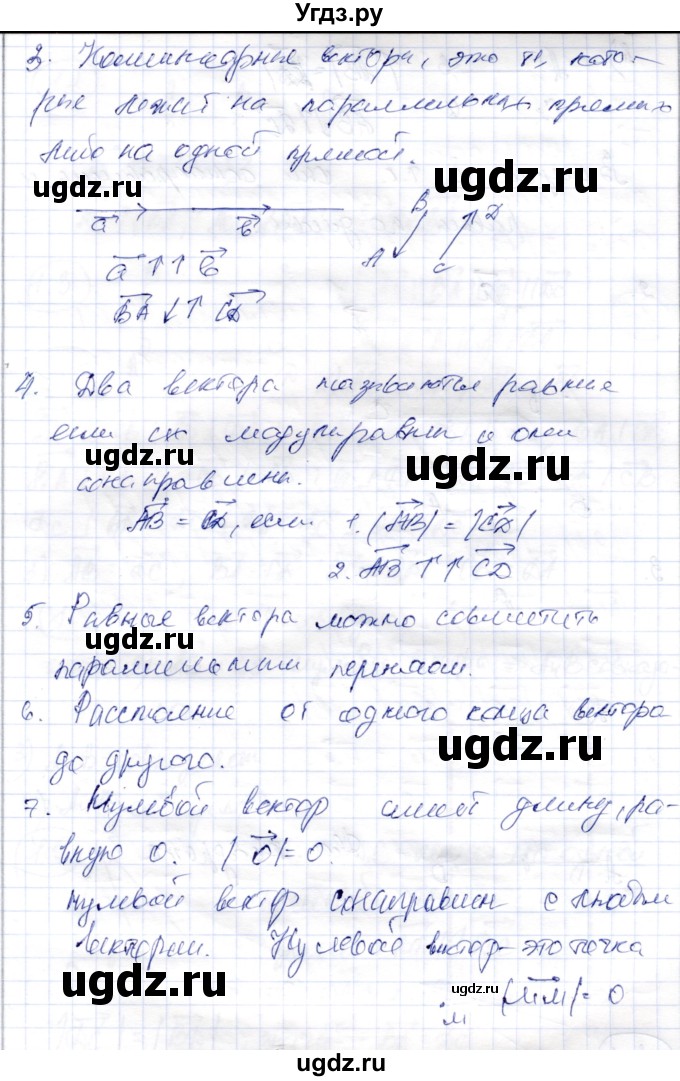 Угдз.ру
3. Коллинеарные вектора, это те, кото-
рые лежат на параллельных прямых
либо на одной прямой.
ugdz.ru ugdz.ru
a b B D
A C
a ↑↑ b
BA ↓↑ CD
4. Два вектора называются равные
если их модули равны и они
ugdz.ru ugdz.ru
сонаправлены.
AB = CD, если 1. |AB| = |CD|
2. AB ↑↑ CD
5. Равные вектора можно совместить
ugdz.ru
параллельным переносом.
6. Расстояние от одного конца вектора
до другого.
ugdz.ru ugdz.ru
7. Нулевой вектор имеет длину, ра-
вную 0. |0| = 0.
нулевой вектор сонаправлен с любым
вектором. Нулевой вектор - это точка
ugdz.ru ugdz.ru
M |MM| = 0
ugdz.ru